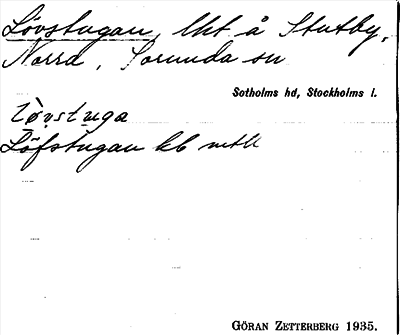 Lövstugan, lht å Stutby,
Norra, Sorunda sn
Sotholms hd, Stockholms l.
Löfstugan kb mtl
GÖRAN ZETTERBERG 1935.